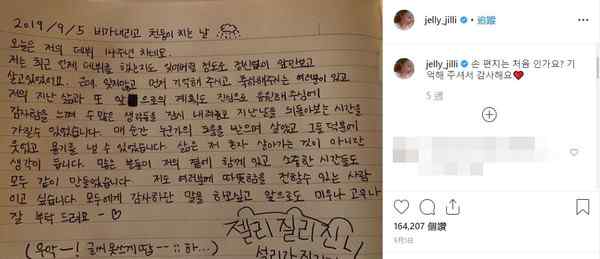 2019/9/5 비가내리고 천둥이 치는 날
오늘은 저의 데뷔 14주년 차네요.
저는 최근 언제 데뷔를 했는지도 잊어버릴 정도로 정신없이 앞만보고
살고있었어요. 근데 잊지않고 먼저 기억해 주시고 축하해주시는 여러분이 있고
저의 지난 삶과 또 앞으로의 계획도 진심으로 응원해주심에
감사함을 느끼며 수많은 생각들을 잠시 내려놓고 지난날을 되돌아보는 시간을
가질수 있었습니다. 매 순간 누군가의 도움을 받으며 살았고 그들 덕분에
웃었고 용기를 낼 수 있었습니다. 삶은 저 혼자 살아가는 것이 아니란
생각이 듭니다. 많은 분들이 저의 곁에 함께 있고 소중한 시간들도
모두 같이 만들었습니다. 저도 여러분께 따뜻함을 전할수 있는 사람
이고 싶습니다 모두에게 감사하단 말을 하고싶고 앞으로도 미우나 고우나
잘 부탁 드려요 - ♡
(우악~! 글씨 못쓰게땀-- ;; 하...)
젤리 질리 진니
jelly_jilli • 追蹤
jelly_jilli 손 편지는 처음 인가요? 기
억해 주셔서 감사해요❤
5 週
164,207 個讚
9月5日